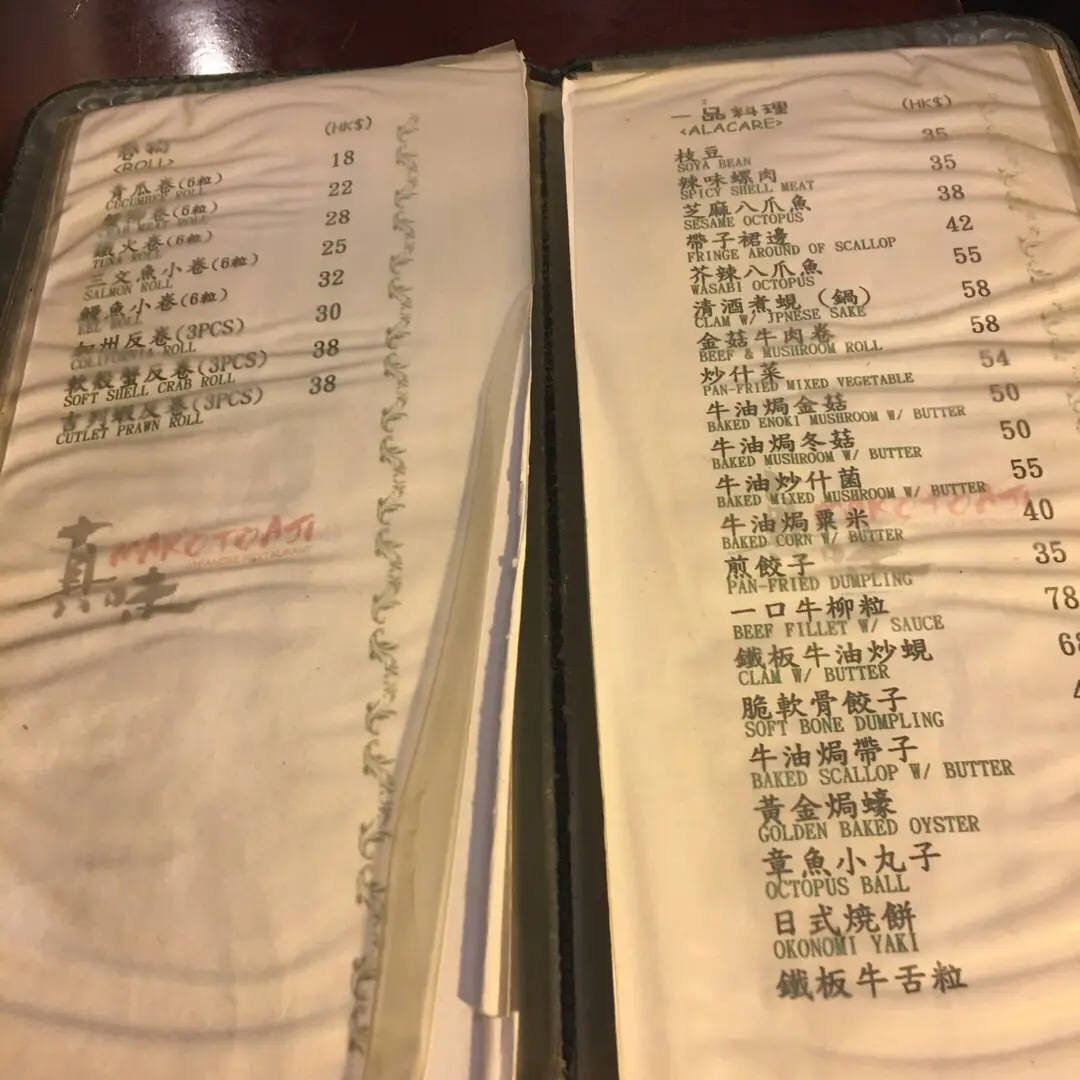 (HK$)
<ROLL>
青瓜卷(6粒) 18
CUCUMBER ROLL
蟹柳卷(6粒) 22
CRAB MEAT ROLL
鐵火卷(6粒) 28
TUNA ROLL
三文魚小卷(6粒) 25
SALMON ROLL
鰻魚小卷(6粒) 32
EEL ROLL
加州反卷(3PCS) 30
COLIFORNIA ROLL
軟殼蟹反卷(3PCS) 38
SOFT SHELL CRAB ROLL
吉列蝦反卷(3PCS) 38
CUTLET PRAWN ROLL
真味 MAKOTO AJI
JAPANESE RESTAURANT
一品料理 (HK$)
<ALACARE>
枝豆 35
SOYA BEAN
辣味螺肉 35
SPICY SHELL MEAT
芝麻八爪魚 38
SESAME OCTOPUS
帶子裙邊 42
FRINGE AROUND OF SCALLOP
芥辣八爪魚 55
WASABI OCTOPUS
清酒煮蜆 (鍋) 58
CLAM W/ JPNESE SAKE
金菇牛肉卷 58
BEEF & MUSHROOM ROLL
炒什菜 54
PAN-FRIED MIXED VEGETABLE
牛油焗金菇 50
BAKED ENOKI MUSHROOM W/ BUTTER
牛油焗冬菇 50
BAKED MUSHROOM W/ BUTTER
牛油炒什菌 55
BAKED MIXED MUSHROOM W/ BUTTER
牛油焗粟米 40
BAKED CORN W/ BUTTER
煎餃子 35
PAN-FRIED DUMPLING
一口牛柳粒 78
BEEF FILLET W/ SAUCE
鐵板牛油炒蜆
CLAM W/ BUTTER
脆軟骨餃子
SOFT BONE DUMPLING
牛油焗帶子
BAKED SCALLOP W/ BUTTER
黃金焗蠔
GOLDEN BAKED OYSTER
章魚小丸子
OCTOPUS BALL
日式燒餅
OKONOMI YAKI
鐵板牛舌粒